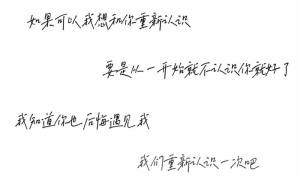 如果可以我想和你重新认识
要是从一开始就不认识你就好了
我知道你也后悔遇见我
我们重新认识一次吧